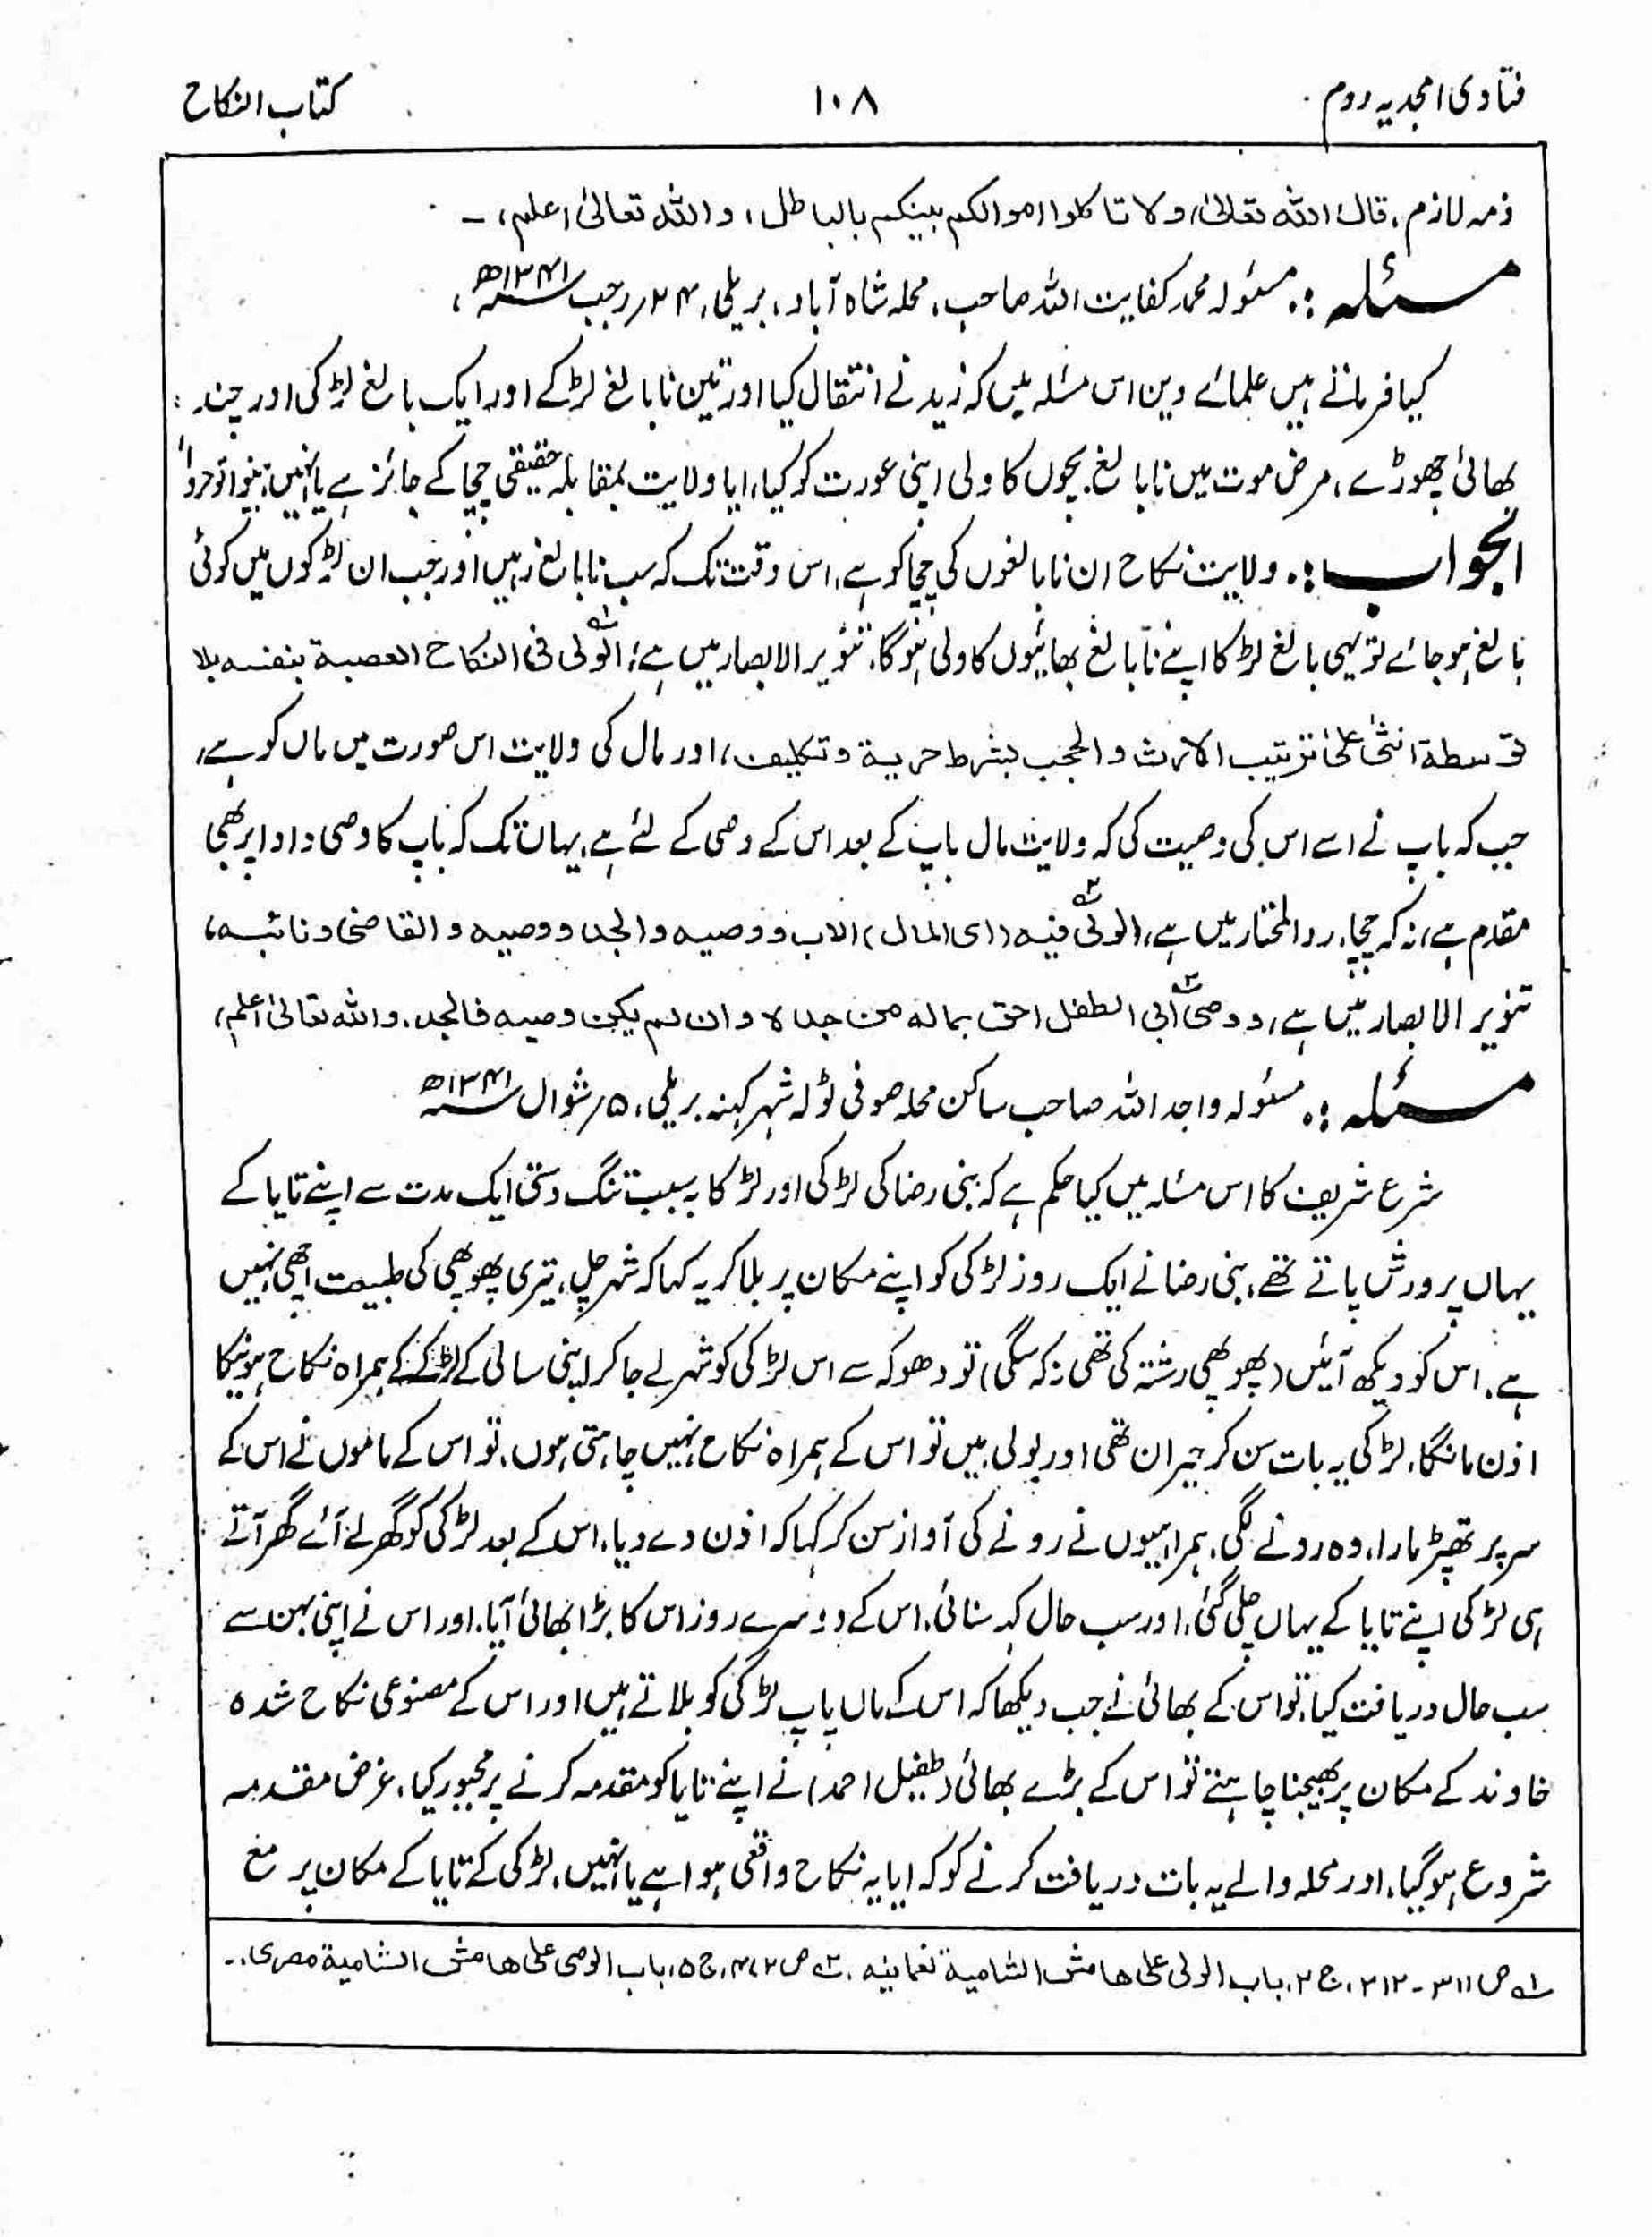 فتاوی امجدیہ دوم ۱۰۸ کتاب النکاح
ذمہ لازم، قال اللہ تعالیٰ، ولا تاکلوا اموالکم بینکم بالباطل، واللہ تعالیٰ اعلم، ـ
مسئلہ :. مسئولہ محمد کفایت اللہ صاحب، محلہ شاہ آباد، بریلی، ۲۴؍ رجب ۱۳۴۱ھ،
کیا فرماتے ہیں علمائے دین اس مسئلہ میں کہ زید نے انتقال کیا اور تین نابالغ لڑکے اور ایک بالغ لڑکی اور چند
بھائی چھوڑے، مرض موت میں نابالغ بچوں کا ولی اپنی عورت کو کیا، ایا ولایت بمقابلہ حقیقی چچا کے جائز ہے یا نہیں، بینوا توجروا
الجواب :. ولایت نکاح ان نابالغوں کی چچا کو ہے، اس وقت تک کہ سب نابالغ رہیں اور جب ان لڑکوں میں کوئی
بالغ ہو جائے تو یہی بالغ لڑکا اپنے نابالغ بھائیوں کا ولی ہوگا، تنویر الابصار میں ہے، الولی فی النکاح العصبۃ بنفسہ بلا
توسطۃ انثیٰ علیٰ ترتیب الارث والحجب بشرط حریۃ و تکلیف، اور مال کی ولایت اس صورت میں ماں کو ہے،
جب کہ باپ نے اسے اس کی وصیت کی کہ ولایت مال باپ کے بعد اس کے وصی کے لئے ہے، یہاں تک کہ باپ کا وصی دادا پر بھی
مقدم ہے، نہ کہ چچا، رد المحتار میں ہے، الولی فیہ (ای المال) الاب ووصیہ والجد ووصیہ والقاضی ونائبہ،
تنویر الابصار میں ہے، ووصی ابی الطفل احق بمالہ من جدہ وان لم یکن وصیہ فالجد، واللہ تعالیٰ اعلم،
مسئلہ :. مسئولہ واجد اللہ صاحب ساکن محلہ صوفی ٹولہ شہر کہنہ بریلی، ۵؍ شوال ۱۳۴۱ھ
شرع شریف کا اس مسئلہ میں کیا حکم ہے کہ بنی رضا کی لڑکی اور لڑکا بہ سبب تنگ دستی ایک مدت سے اپنے تایا کے
یہاں پرورش پاتے تھے، بنی رضا نے ایک روز لڑکی کو اپنے مکان پر بلا کر یہ کہا کہ شہر چل، تیری پھوپھی کی طبیعت اچھی نہیں
ہے، اس کو دیکھ آئیں (پھوپھی رشتہ کی تھی نہ کہ سگی) تو دھوکہ سے اس لڑکی کو شہر لے جا کر اپنی سالی کے لڑکے کے ہمراہ نکاح ہونیکا
اذن مانگا، لڑکی یہ بات سن کر حیران تھی اور بولی میں تو اس کے ہمراہ نکاح نہیں چاہتی ہوں، تو اس کے ماموں نے اس کے
سر پر تھپڑ مارا، وہ رونے لگی، ہمراہیوں نے رونے کی آواز سن کر کہا کہ اذن دے دیا، اس کے بعد لڑکی کو گھر لے آئے گھر آتے
ہی لڑکی اپنے تایا کے یہاں چلی گئی، اور سب حال کہہ سنائی، اس کے دوسرے روز اس کا بڑا بھائی آیا، اور اس نے اپنی بہن سے
سب حال دریافت کیا، تو اس کے بھائی نے جب دیکھا کہ اس کے ماں باپ لڑکی کو بلاتے ہیں اور اس کے مصنوعی نکاح شدہ
خاوند کے مکان پر بھیجنا چاہتے تو اس کے بڑے بھائی (طفیل احمد) نے اپنے تایا کو مقدمہ کرنے پر مجبور کیا، غرض مقدمہ
شروع ہو گیا، اور محلہ والے یہ بات دریافت کرنے کو کہ ایا یہ نکاح واقعی ہوا ہے یا نہیں، لڑکی کے تایا کے مکان پر مع
۱؎ ص ۳۱۱ ـ ۲۱۲، ج ۲، باب الولی علی ھامش الشامیۃ نعمانیہ، ۲؎ ص ۴۷۲، ج ۵، باب الوصی علی ھامش الشامیۃ مصری ـ